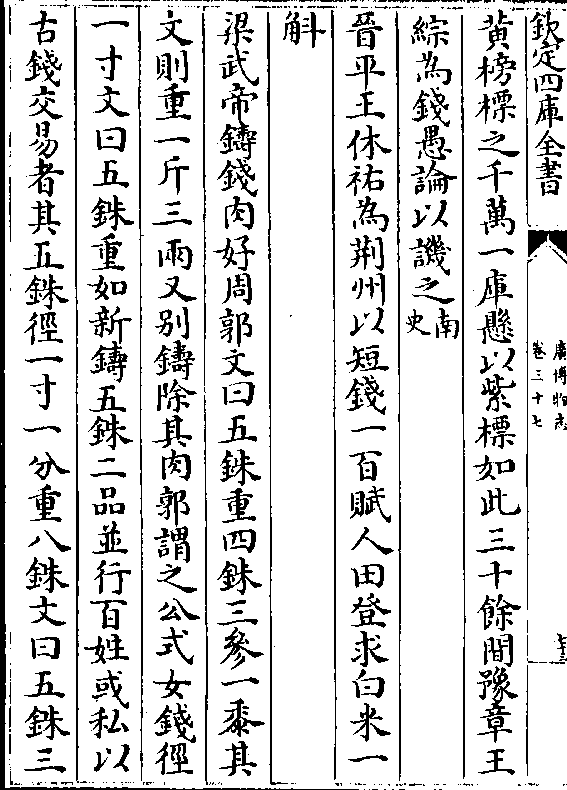 欽定四庫全書
廣博物志
卷三十七
黄榜標之千萬一庫懸以紫標如此三十餘間豫章王
綜為錢愚論以譏之南史
晉平王休祐為荆州以短錢一百賦人田登求白米一
斛
梁武帝鑄錢肉好周郭文曰五銖重四銖三參一黍其
文則重一斤三兩又别鑄除其肉郭謂之公式女錢徑
一寸文曰五銖重如新鑄五銖二品並行百姓或私以
古錢交易者其五銖徑一寸一分重八銖文曰五銖三